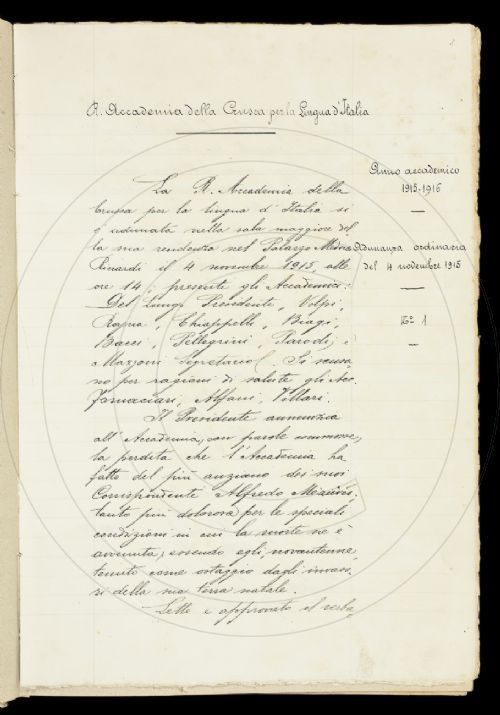 R. Accademia della Crusca per la Lingua d'Italia
Anno accademico
1915-1916
Adunanza ordinaria
del 4 novembre 1915
N.° 1
La R. Accademia della
Crusca per la lingua d'Italia si
è adunata nella sala maggiore del-
la sua residenza nel Palazzo Mediceo
Riccardi il 4 novembre 1915, alle
ore 14; presenti gli Accademici:
Del Lungo Presidente, Volpi,
Rajna, Chiappelli, Biagi,
Bacci, Pellegrini, Parodi; e
Mazzoni Segretario. Si scusa-
no per ragioni di salute gli Acc.
Fornaciari, Alfani, Villari.
Il Presidente annunzia
all'Accademia, con parole commosse,
la perdita che l'Accademia ha
fatto del più anziano dei suoi
Corrispondenti Alfredo
tanto più dolorosa per le speciali
condizioni in cui la morte ne è
avvenuta, essendo egli, novantenne,
tenuto come ostaggio dagli invaso-
ri della sua terra natale.
Letto e approvato il verba-